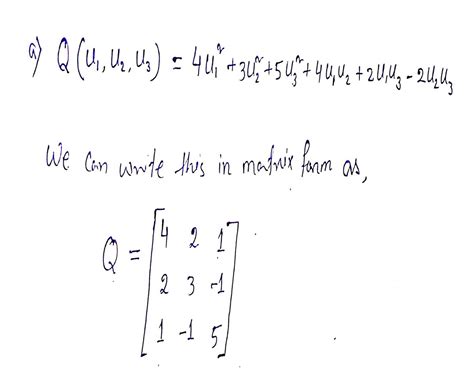 a) Q (u₁, u₂, u₃) = 4u₁² + 3u₂² + 5u₃² + 4u₁u₂ + 2u₁u₃ - 2u₂u₃
We can write this in matrix form as,
Q = [4 2 1
2 3 -1
1 -1 5]